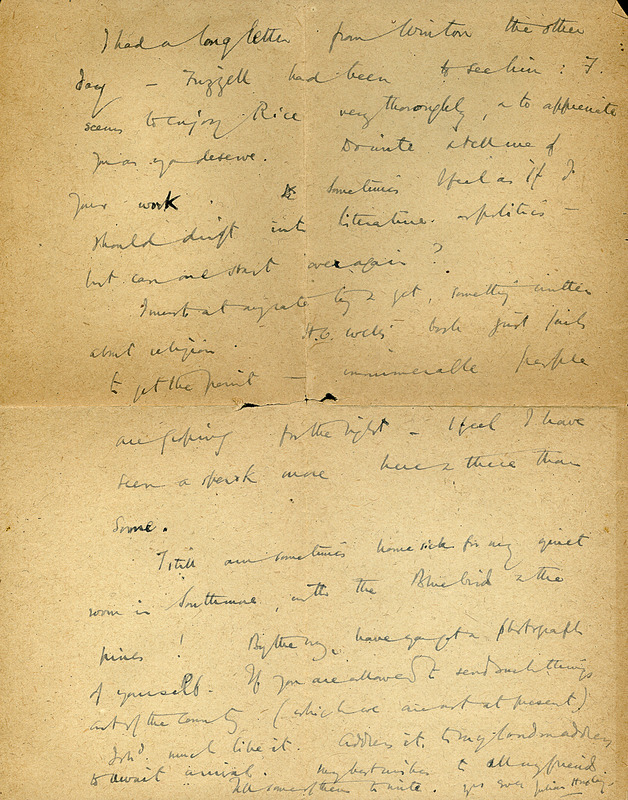 I had a long letter from Winton the other
day — Frizzell had been to see him : F.
seems to enjoy Rice very thoroughly, & to appreciate
you as you deserve. Do write & tell me of
your work. Sometimes I feel as if I
should drift into literature or politics —
but can one start over again ?
I must at any rate try & get something written
about religion. H.G. Wells' book just fails
to get the point — innumerable people
are groping for the light — I feel I have
seen a spark more here & there than
some.
I still am sometimes homesick for my quiet
room in Southmore, with the Bluebird & the
pines ! By the way, have you got a photograph
of yourself. If you are allowed to send such things
out of the country (which we are not at present)
I sh'd much like it. Address it to my London address
to await arrival. My best wishes to all my friends
tell some of them to write. yrs ever Julian Huxley